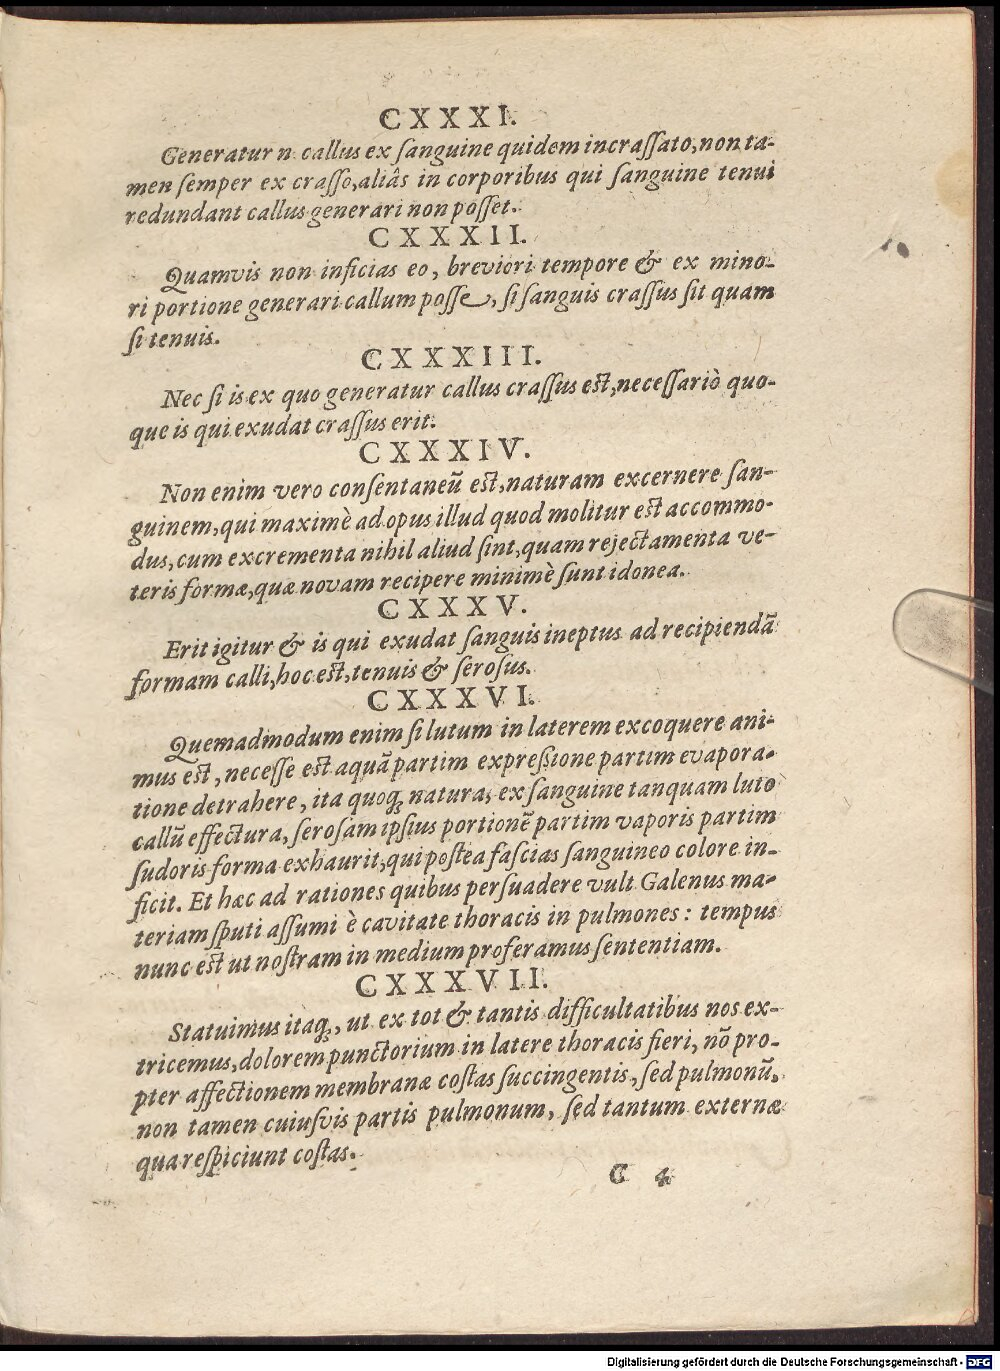 CXXXI.
Generatur n. callus ex ſanguine quidem incraſſato, non ta-
men ſemper ex craſſo, aliâs in corporibus qui ſanguine tenui
redundant callus generari non poſſet.
CXXXII.
Quamvis non inficias eo, breviori tempore & ex mino-
ri portione generari callum poſſe, ſi ſanguis craſſus ſit quam
ſi tenuis.
CXXXIII.
Nec ſi is ex quo generatur callus craſſus eſt, neceſſariò quo-
que is qui exudat craſſus erit.
CXXXIV.
Non enim vero conſentaneũ eſt, naturam excernere ſan-
guinem, qui maximè ad opus illud quod molitur eſt accommo-
dus, cum excrementa nihil aliud ſint, quam rejectamenta ve-
teris formæ, quæ novam recipere minimè ſunt idonea.
CXXXV.
Erit igitur & is qui exudat ſanguis ineptus ad recipiendã
formam calli, hoc eſt, tenuis & ſeroſus.
CXXXVI.
Quemadmodum enim ſi lutum in laterem excoquere ani-
mus eſt, neceſſe eſt aquã partim expreßione partim evapora-
tione detrahere, ita quoq; natura, ex ſanguine tanquam luto
callũ effectura, ſeroſam ipſius portionẽ partim vaporis partim
ſudoris forma exhaurit, qui poſtea faſcias ſanguineo colore in-
ficit. Et hæc ad rationes quibus perſuadere vult Galenus ma-
teriam ſputi aſſumi è cavitate thoracis in pulmones: tempus
nunc eſt ut noſtram in medium proferamus ſententiam.
CXXXVII.
Statuimus itaq;, ut ex tot & tantis difficultatibus nos ex-
tricemus, dolorem punctorium in latere thoracis fieri, nõ pro-
pter affectionem membranæ coſtas ſuccingentis, ſed pulmonũ,
non tamen cuiuſvis partis pulmonum, ſed tantum externæ
qua reſpiciunt coſtas.
C 4
Digitalisierung gefördert durch die Deutsche Forschungsgemeinschaft - DFG